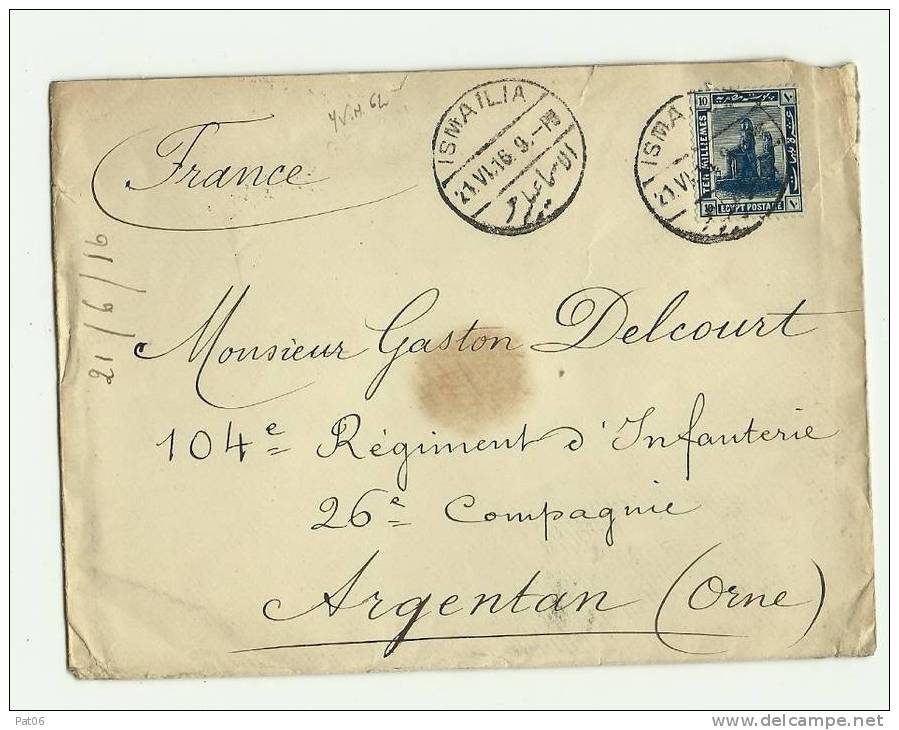 ISMAILIA
21.VI.16.9.-
الاسماعيلية
ISMA
21.VI.
10
TEN MILLIEMES
10 EGYPT POSTAGE ١٠
France
21/6/16
Monsieur Gaston Delcourt
104e Régiment d'Infanterie
26e Compagnie
Argentan (Orne)
Pat06
http://www.delcampe.net